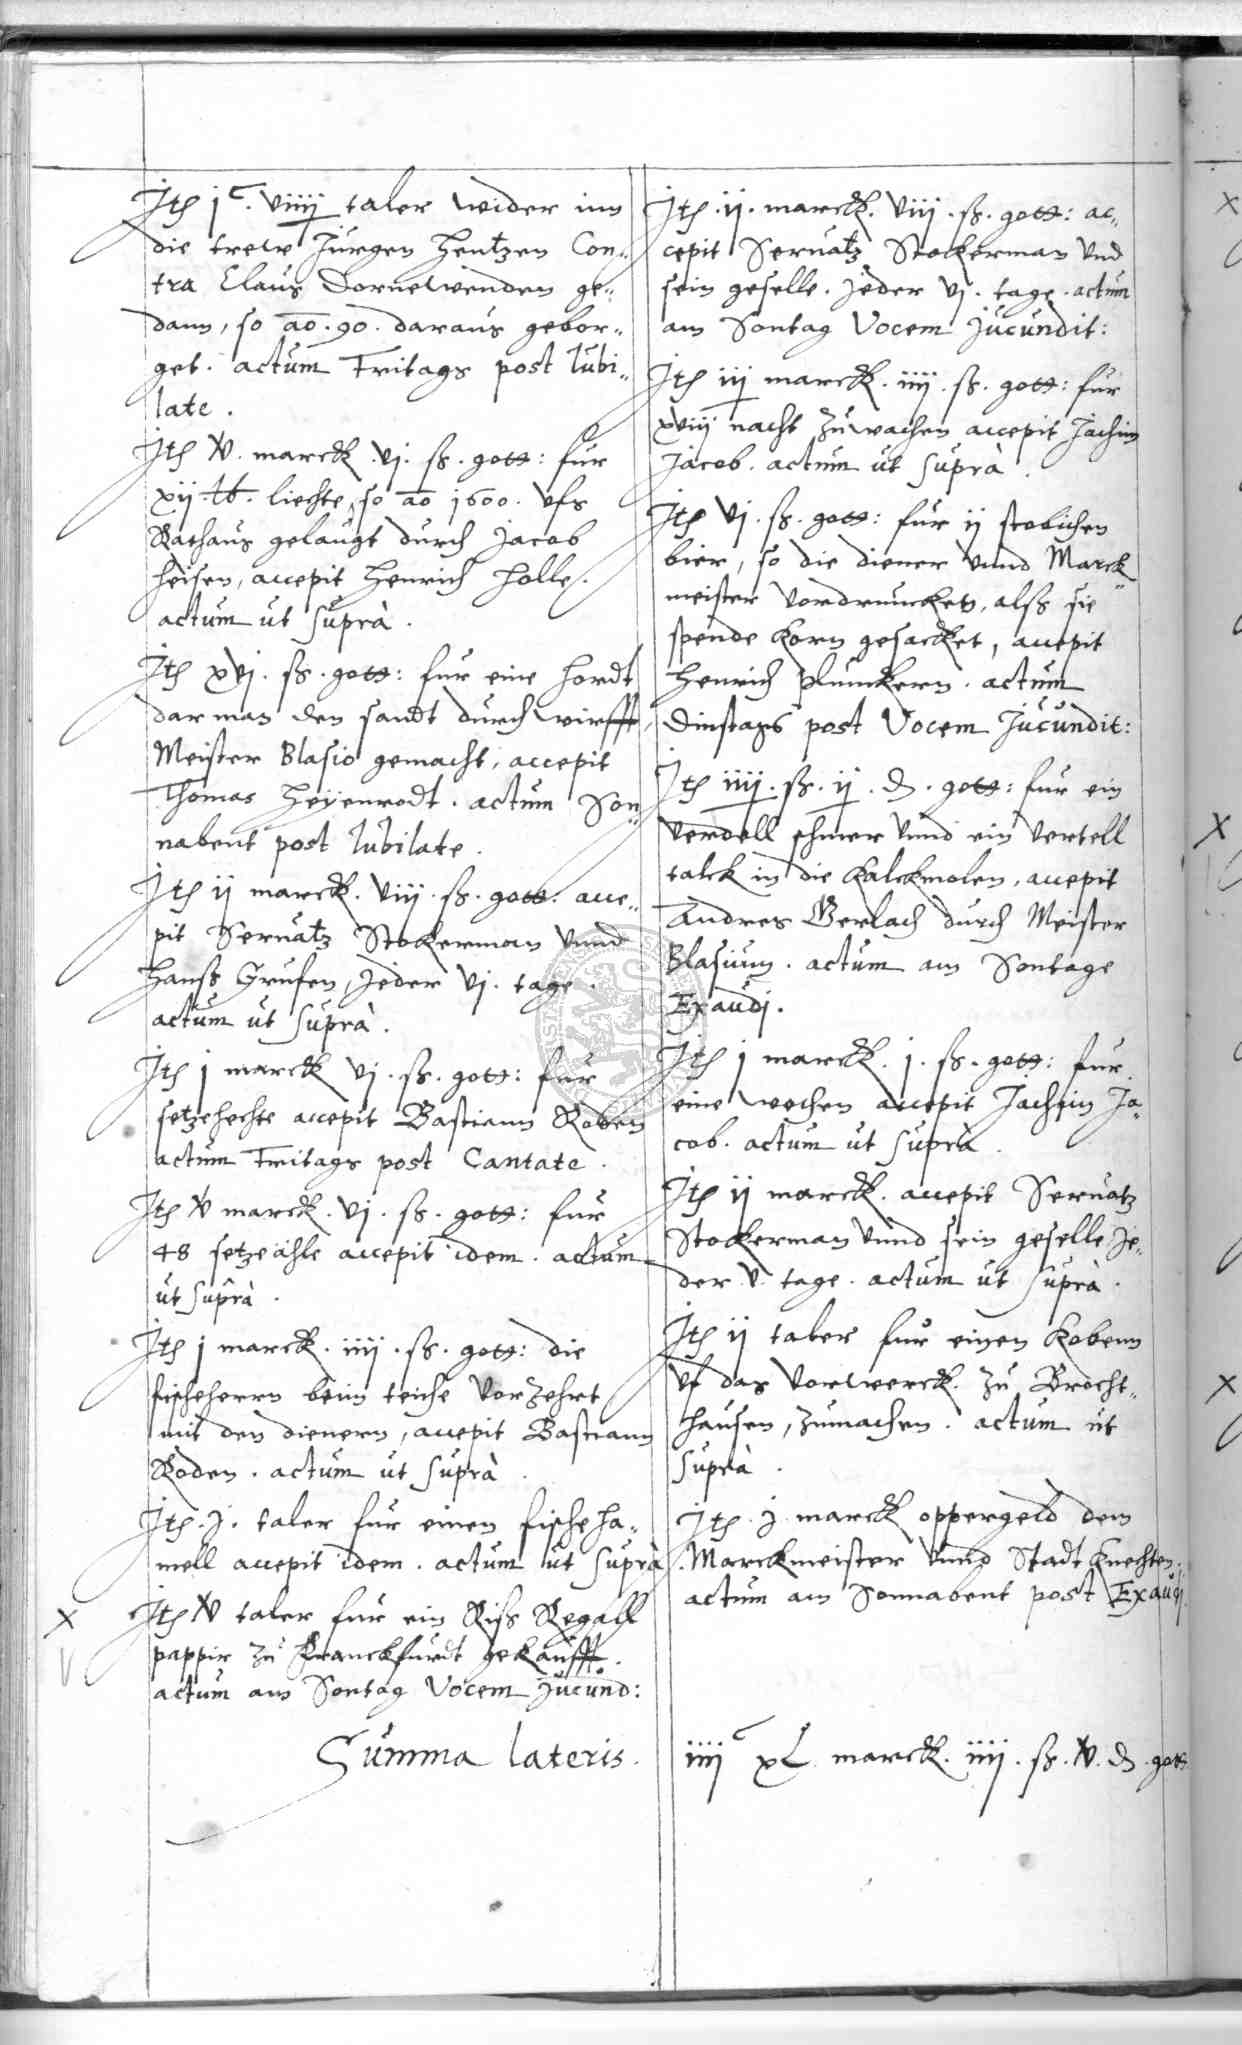 Jtem jC. viiij taler wider inn
die trewe Jurgen Hentzen Con„
tra Claus Dornewinden ge„
dann, so ao. 90. daraus gebor„
get. actum Freitags post Jubi„
late.
Jtem v. marck. vj. ß. gott: fur
xij. lb. liechte, so ao 1600. vfs
Rathaus gelangt durch Jacob
Heisen, accepit Henrich Holle.
actum ut suprà.
Jtem xvj. ß. gott: fur eine hordt
dar man den sandt durch wirfft
Meister Blasio gemacht, accepit
Thomas Heyenrodt. actum Son„
nabent post Jubilate.
Jtem ij marck. viij. ß. gott: acce„
pit Seruatz Stockerman vnnd
Hanß Grusen, Jeder vj. tage.
actum ut suprà.
Jtem j marck vj. ß. gott: fur
setzehechte accepit Bastiann Roden
actum Freitags post Cantate.
Jtem v marck. vj. ß. gott: fur
48 setzeähle accepit idem. actum
ut suprà.
Jtem j marck. iiij. ß. gott: die
fischeherrn beim teiche vorzehrt
mit den dienern, accepit Bastiann
Roden. actum ut suprà.
Jtem. j. taler fur einen fische ha„
mell accepit idem. actum ut suprà
Jtem v taler fur ein Riß Regall
pappir zu Franckfurdt gekaufft.
actum am Sontag Vocem Jucund:
Jtem. ij. marck. viij. ß. gott: ac„
cepit Seruatz Stockerman vnd
sein geselle. Jeder vj. tage. actum
am Sontag Vocem Jucundit:
Jtem iij marck. iiij. ß. gott: fur
xviij nacht zuwachen accepit Jachim
Jacob. actum ut suprà.
Jtem vj. ß. gott: fur ij stobichen
bier, so die diener vnnd Marck„
meister vordruncken, alß sie
spende Korn gesacket, accepit
Henrich Plunckern. actum
Dinstags post Vocem Jucundit:
Jtem iiij. ß. ij. d. gott: fur ein
verdell schmer vnnd ein vertell
talck in die Kalckmolen, accepit
Andres Gerlach durch Meister
Blasium. actum am Sontage
Exaudj.
Jtem j marck. j. ß. gott: fur
eine wochen accepit Jachim Ja„
cob. actum ut suprà.
Jtem ij marck. accepit Seruatz
Stockerman vnnd sein geselle Je„
der v. tage. actum ut suprà.
Jtem ij taler fur einen Kobenn
vf das Vorwerck. zu Brocht„
hausen, zumachen. actum ut
suprà.
Jtem. j. marck oppergeld dem
Marckmeister vnnd Stadt Knechten.
actum am Sonnabent post Exaudj.
Summa lateris. iiijC xL marck. iiij. ß. v. d. gott